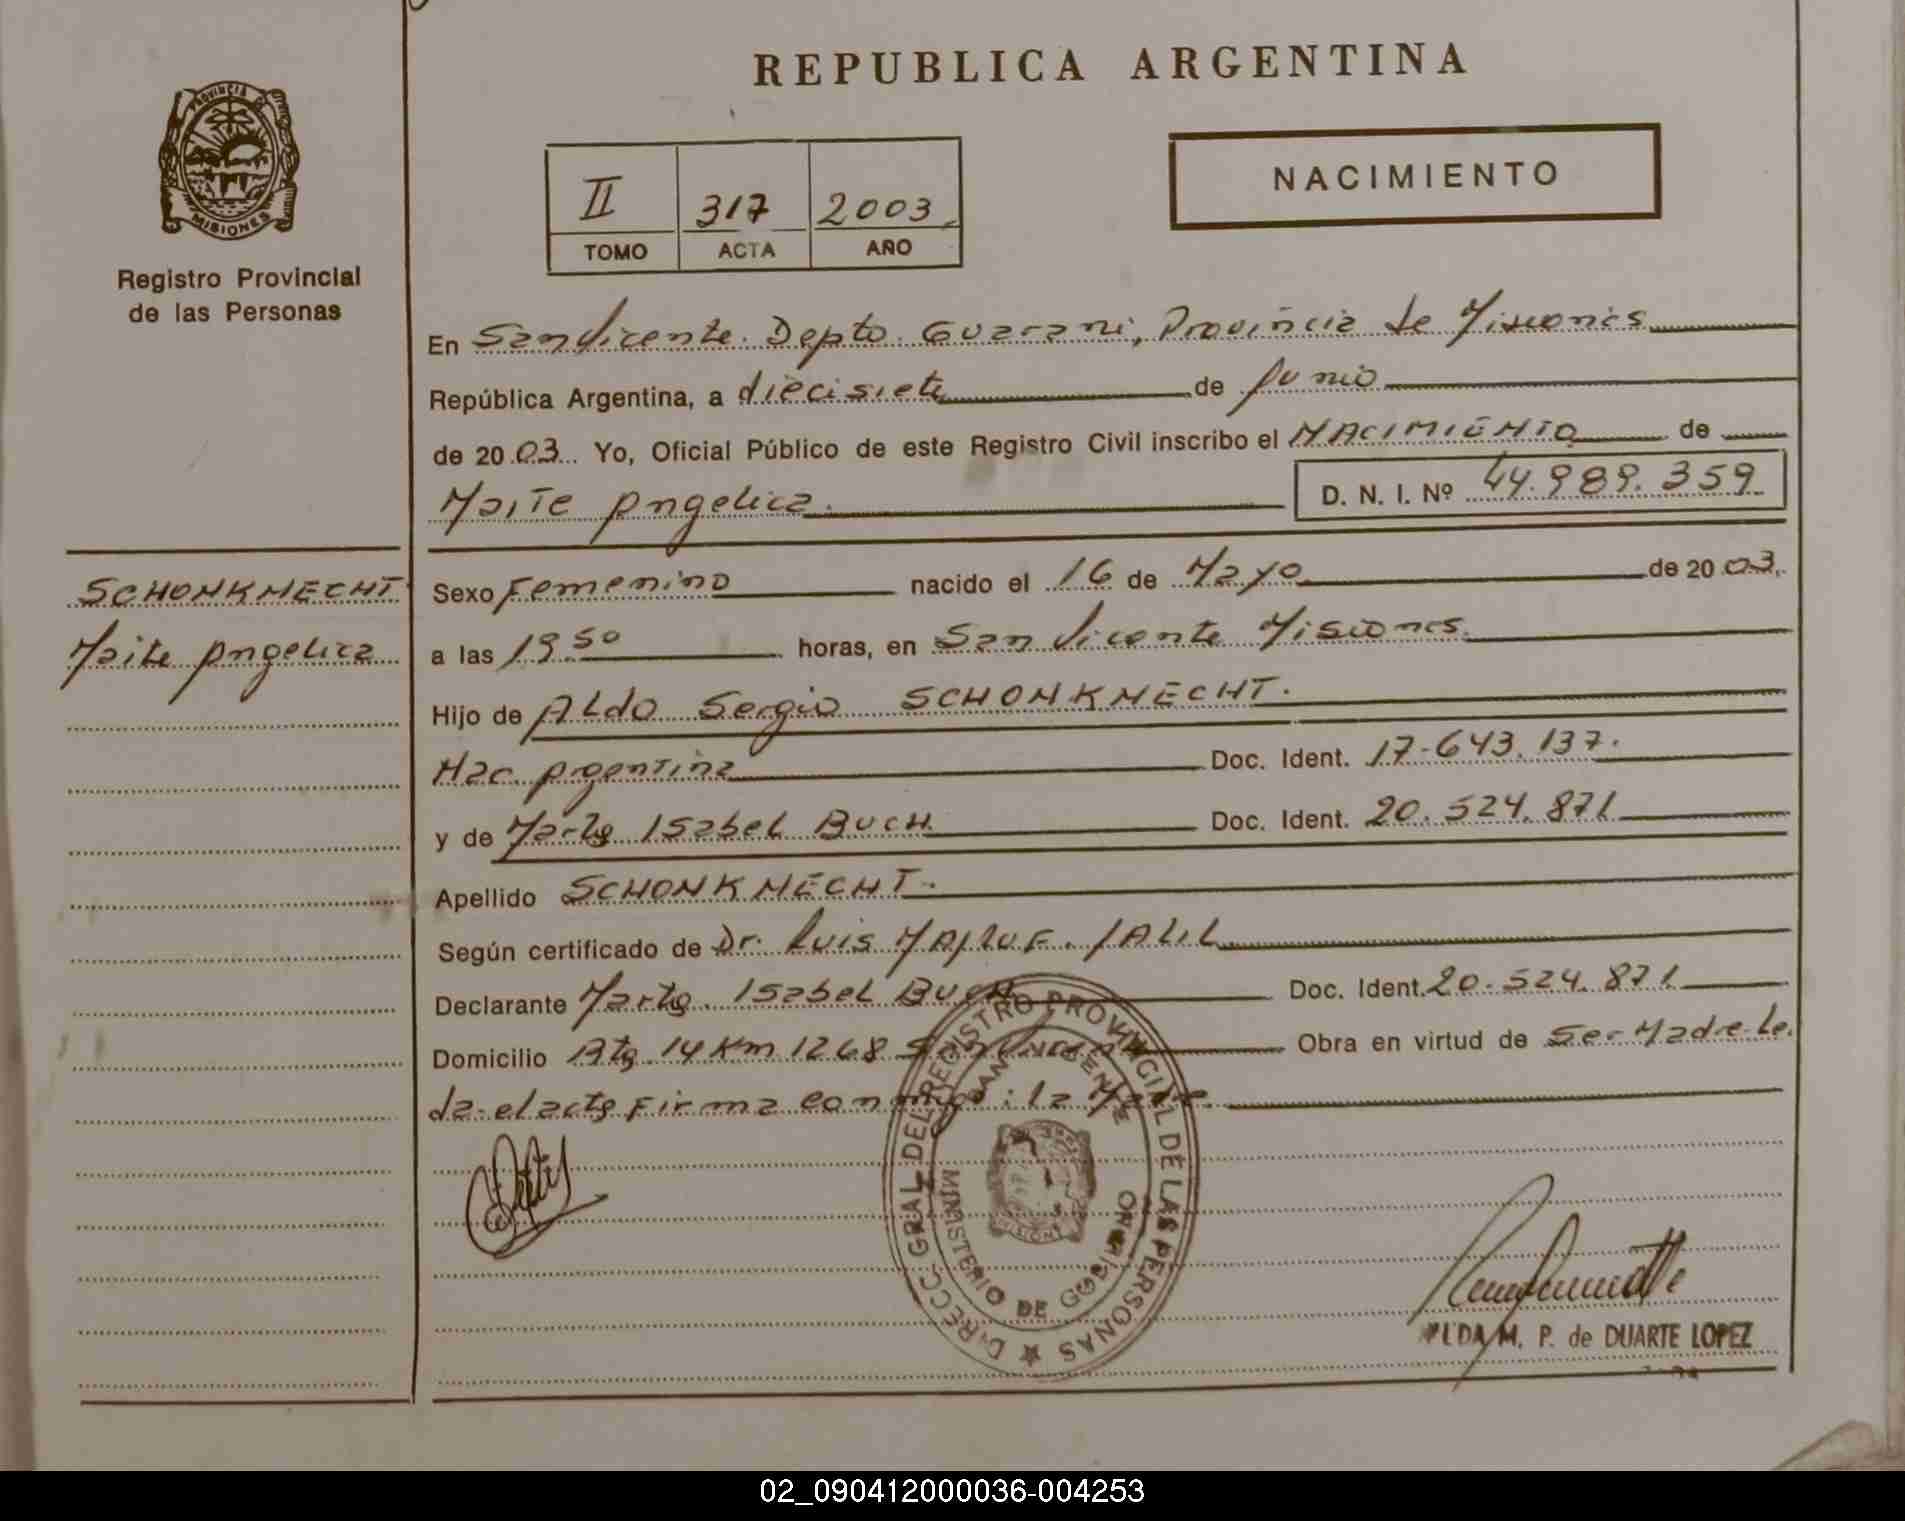 REPUBLICA ARGENTINA
PROVINCIA DE
MISIONES
Registro Provincial
de las Personas
II 317 2003
TOMO ACTA AÑO
NACIMIENTO
En San Vicente. Depto. Guarani, Provincia de Misiones
República Argentina, a diecisiete de Junio
de 2003. Yo, Oficial Público de este Registro Civil inscribo el NACIMIENTO de
Maite Angelica. D. N. I. Nº 44.989.359
SCHONKNECHT
Maite Angelica
Sexo Femenino nacido el 16 de Mayo de 2003.
a las 19.50 horas, en San Vicente Misiones.
Hijo de Aldo Sergio SCHONKNECHT.
Nac Argentina Doc. Ident. 17.643.137.
y de Marta Isabel Buch Doc. Ident. 20.524.871
Apellido SCHONKNECHT.
Según certificado de Dr. Luis JALIL
Declarante Marta Isabel Buch Doc. Ident. 20.524.871
Domicilio Rta 14 Km 1268 San Vicente Obra en virtud de ser Madre Le.
da el acta Firma conmigo: la Madre.
DIRECC. GRAL. DEL REGISTRO PROVINCIAL DE LAS PERSONAS
SAN VICENTE
MINISTERIO DE GOBIERNO
M. P. de DUARTE LOPEZ
02_090412000036-004253